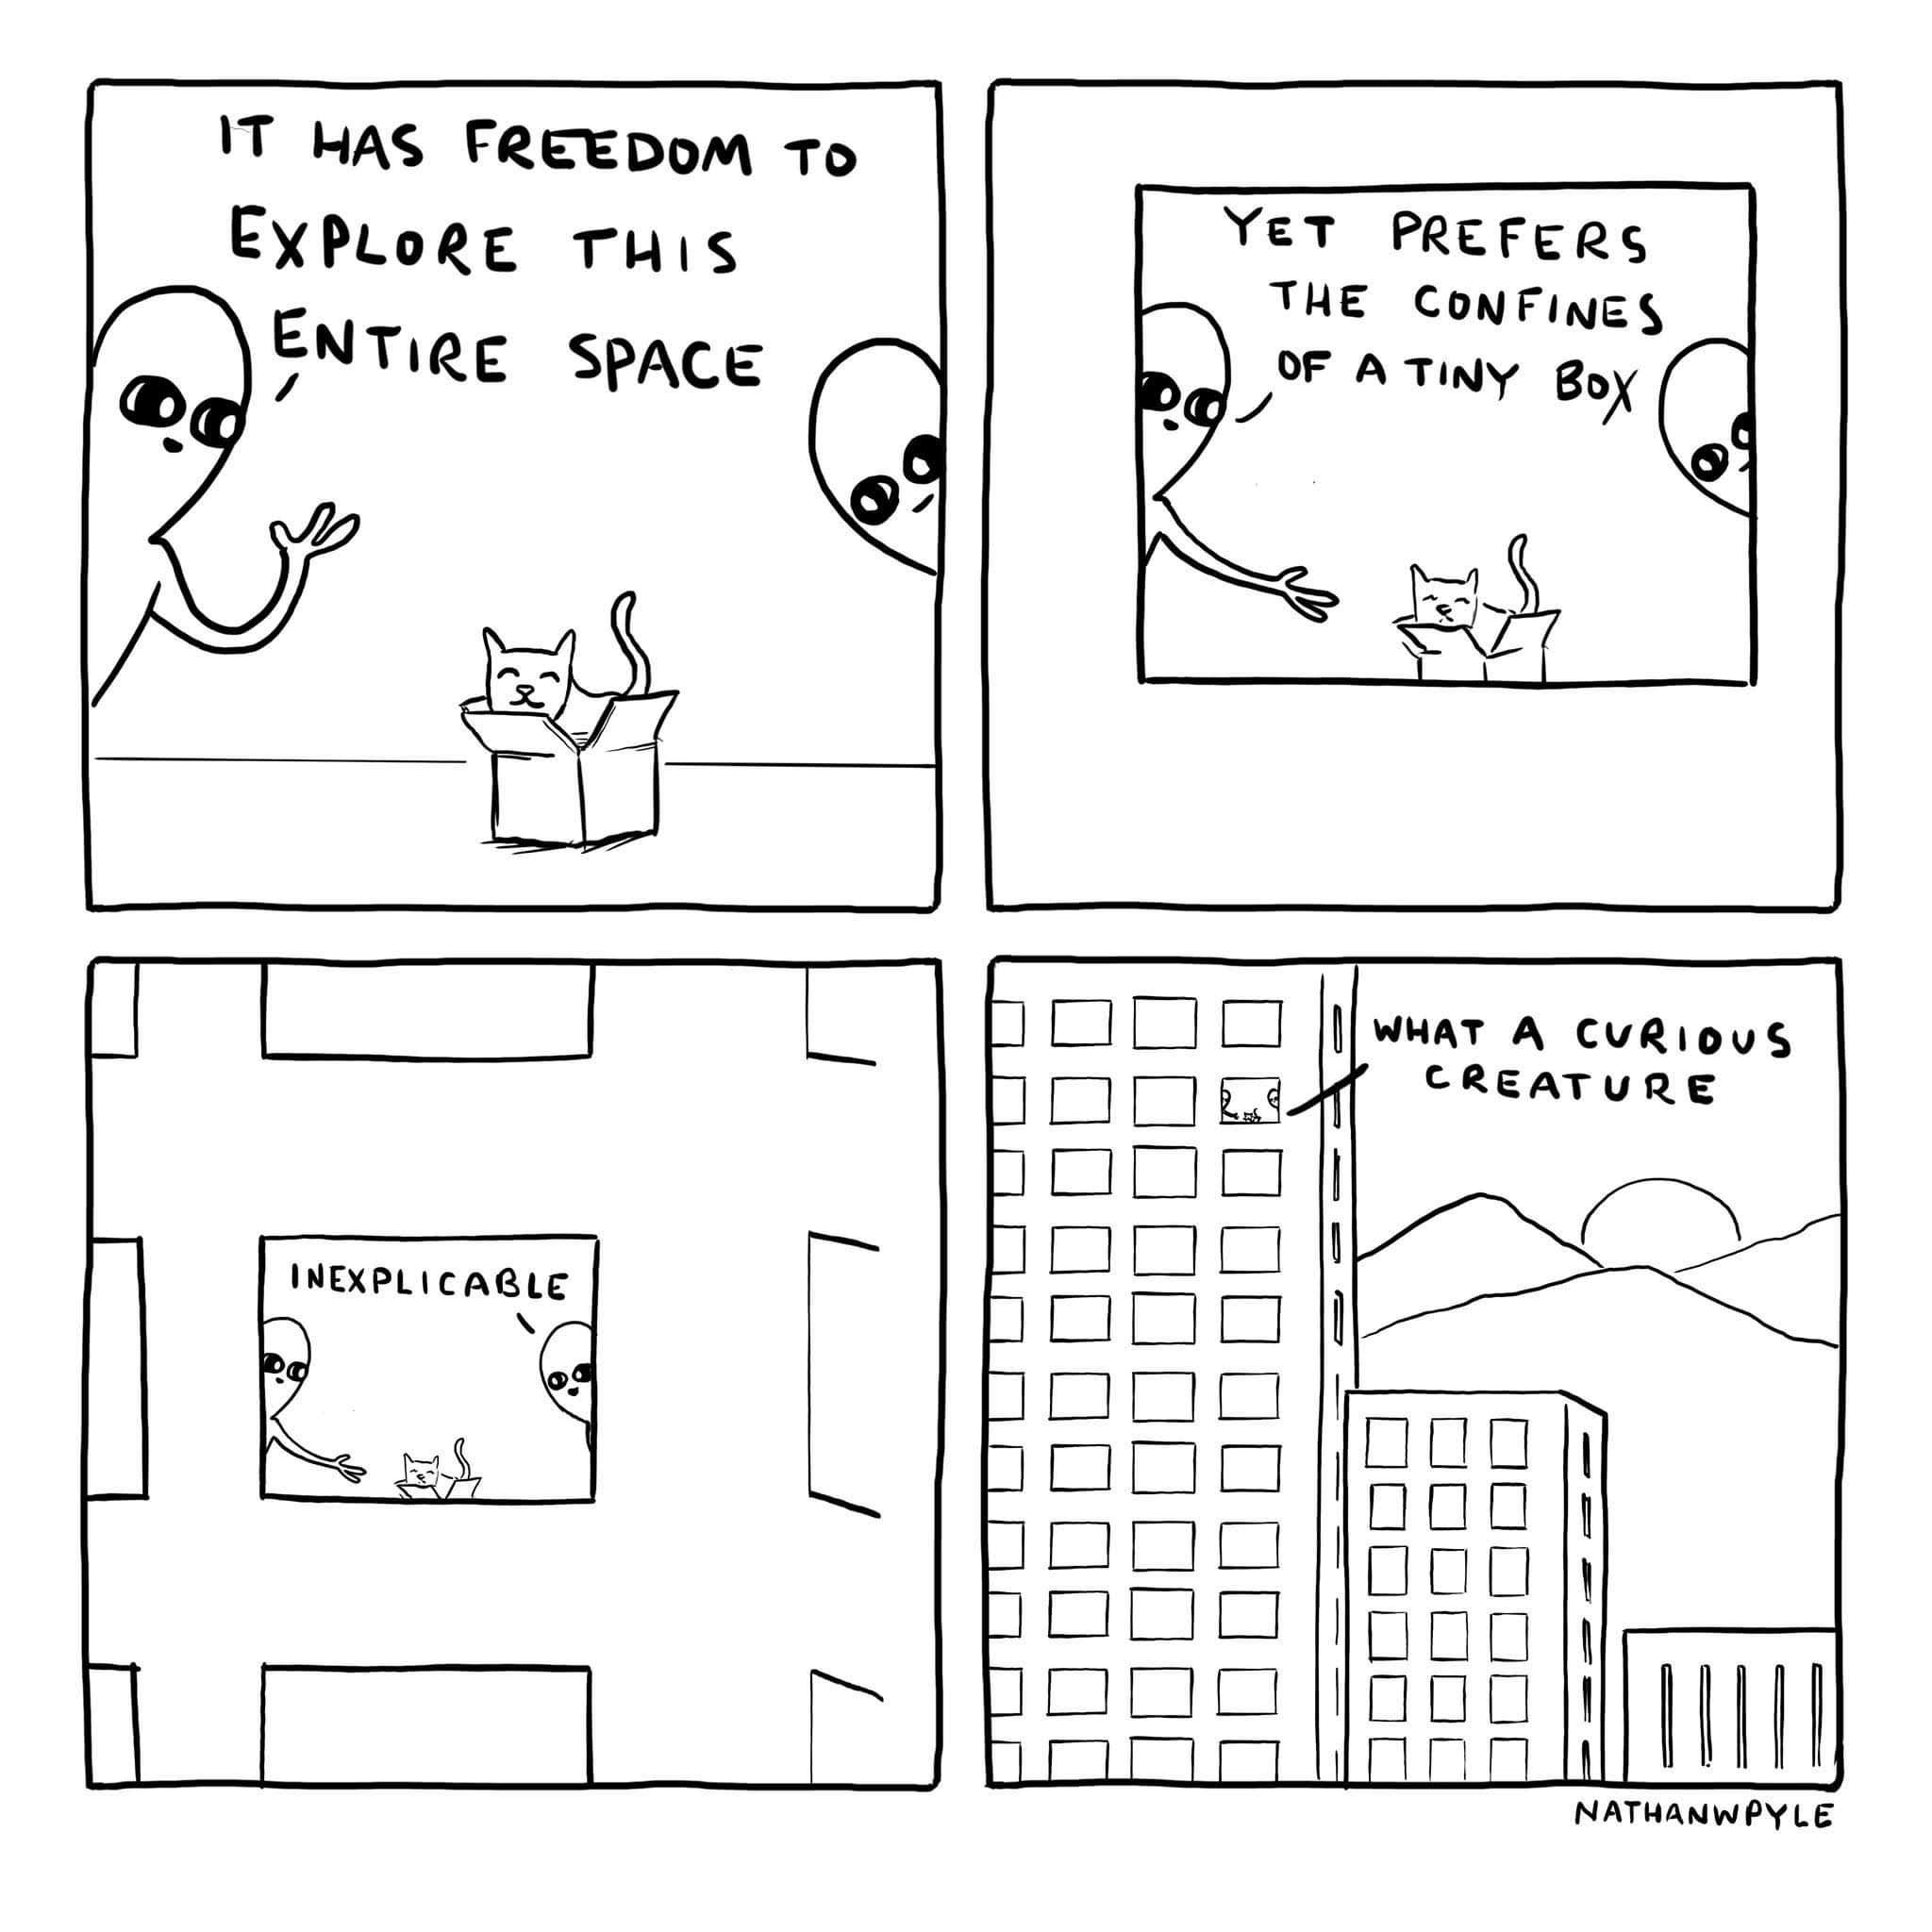 IT HAS FREEDOM TO
EXPLORE THIS
ENTIRE SPACE
YET PREFERS
THE CONFINES
OF A TINY BOX
INEXPLICABLE
WHAT A CURIOUS
CREATURE
NATHANWPYLE